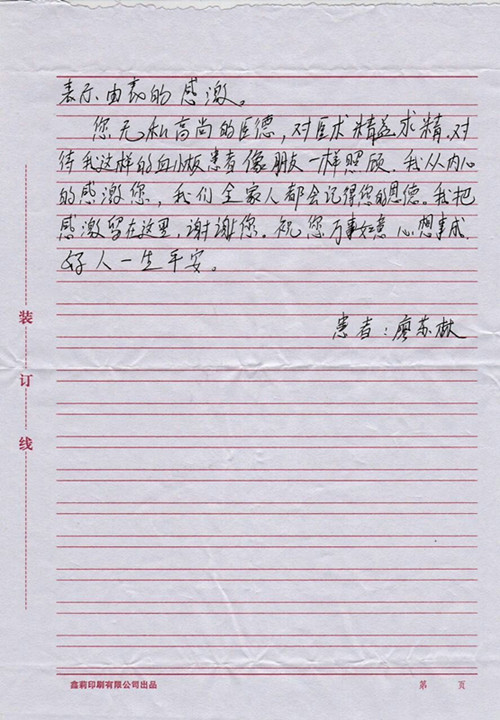 表示由衷的感激。
您无私高尚的医德，对医术精益求精，对
待我这样的血小板患者像朋友一样照顾。我从内心
的感激您，我们全家人都会记得您的恩德。我把
感激留在这里，谢谢您。祝您万事如意心想事成，
好人一生平安。
患者：廖苏林
装
订
线
鑫莉印刷有限公司出品
第 页